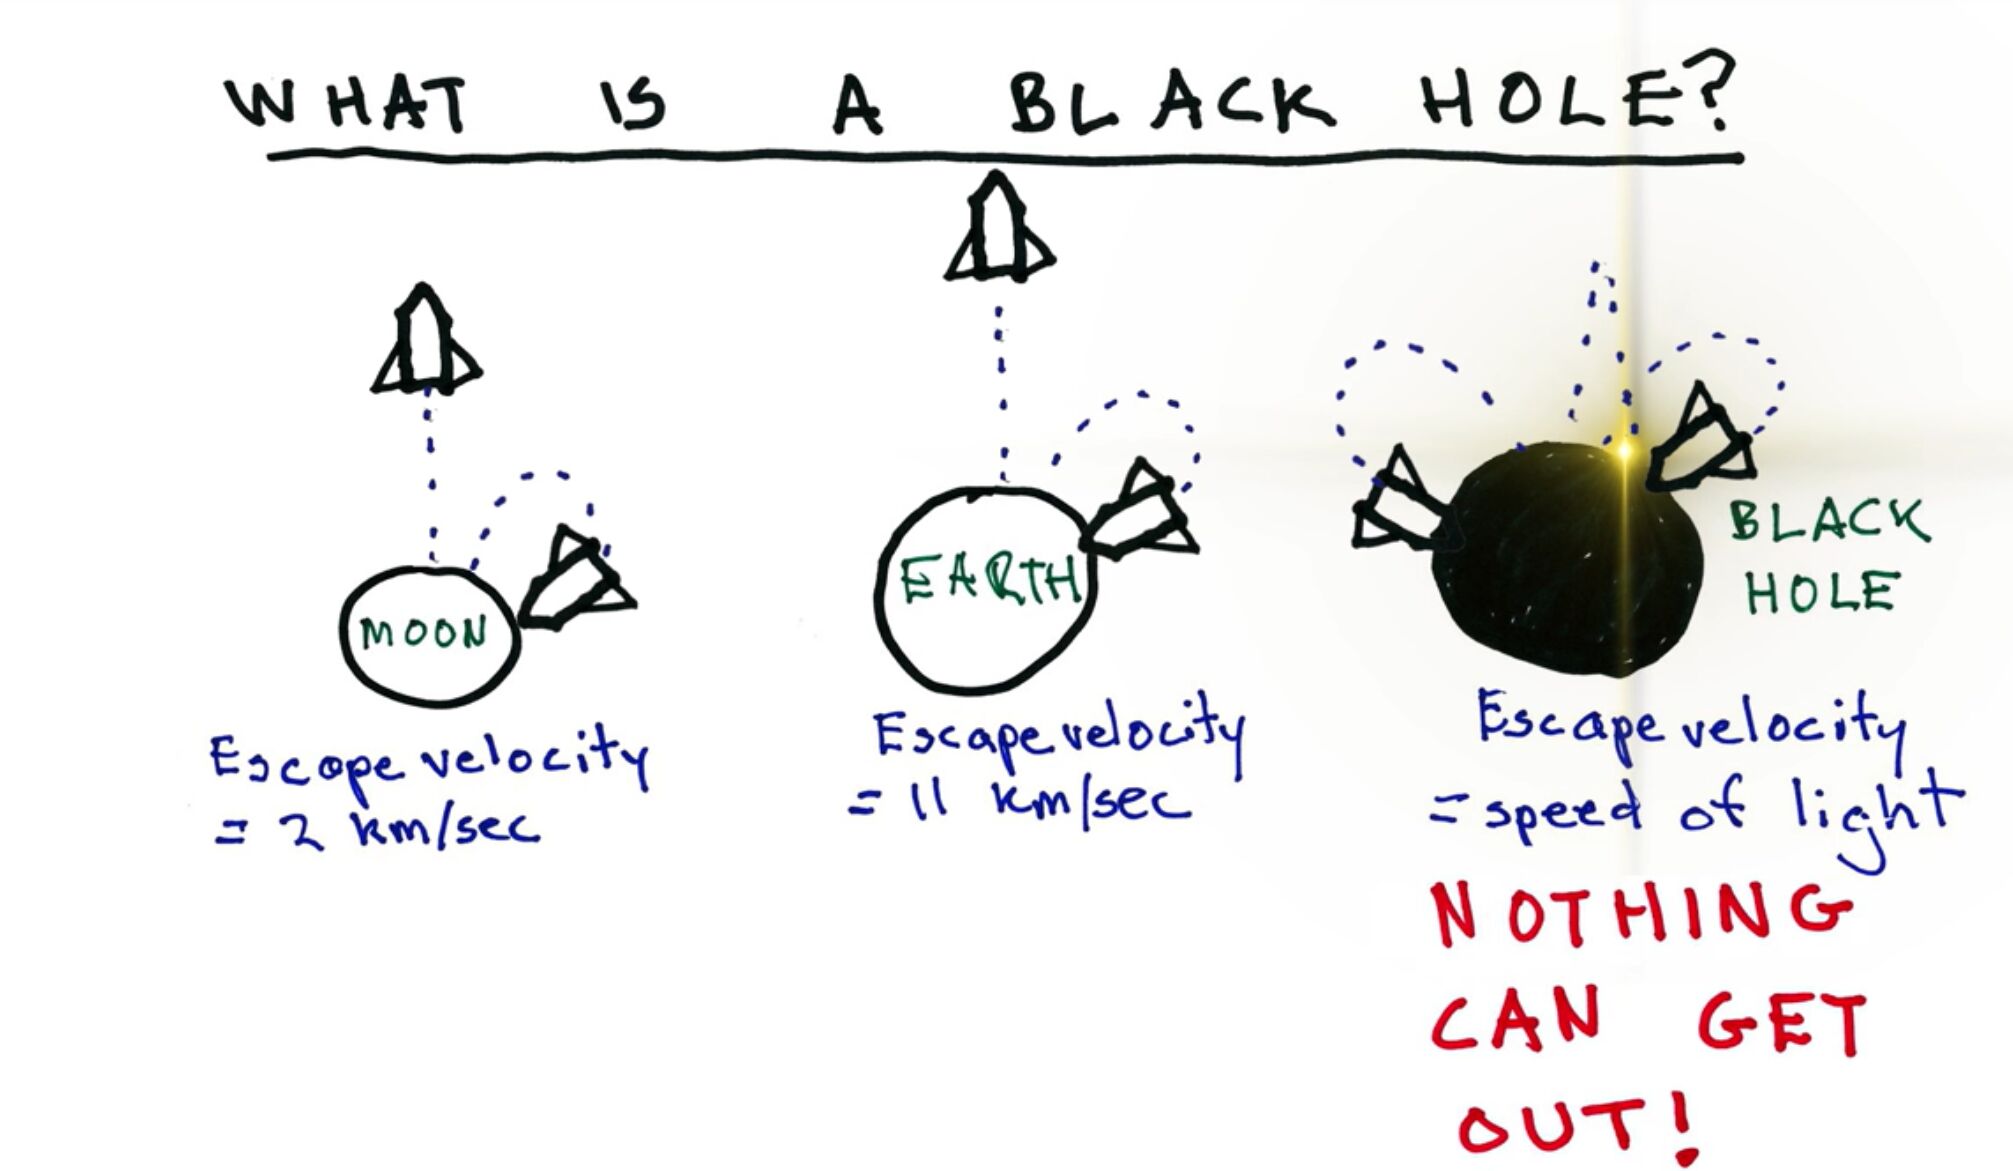 WHAT IS A BLACK HOLE?
MOON
Escape velocity
= 2 km/sec
EARTH
Escape velocity
= 11 km/sec
BLACK
HOLE
Escape velocity
= speed of light
NOTHING
CAN GET
OUT!